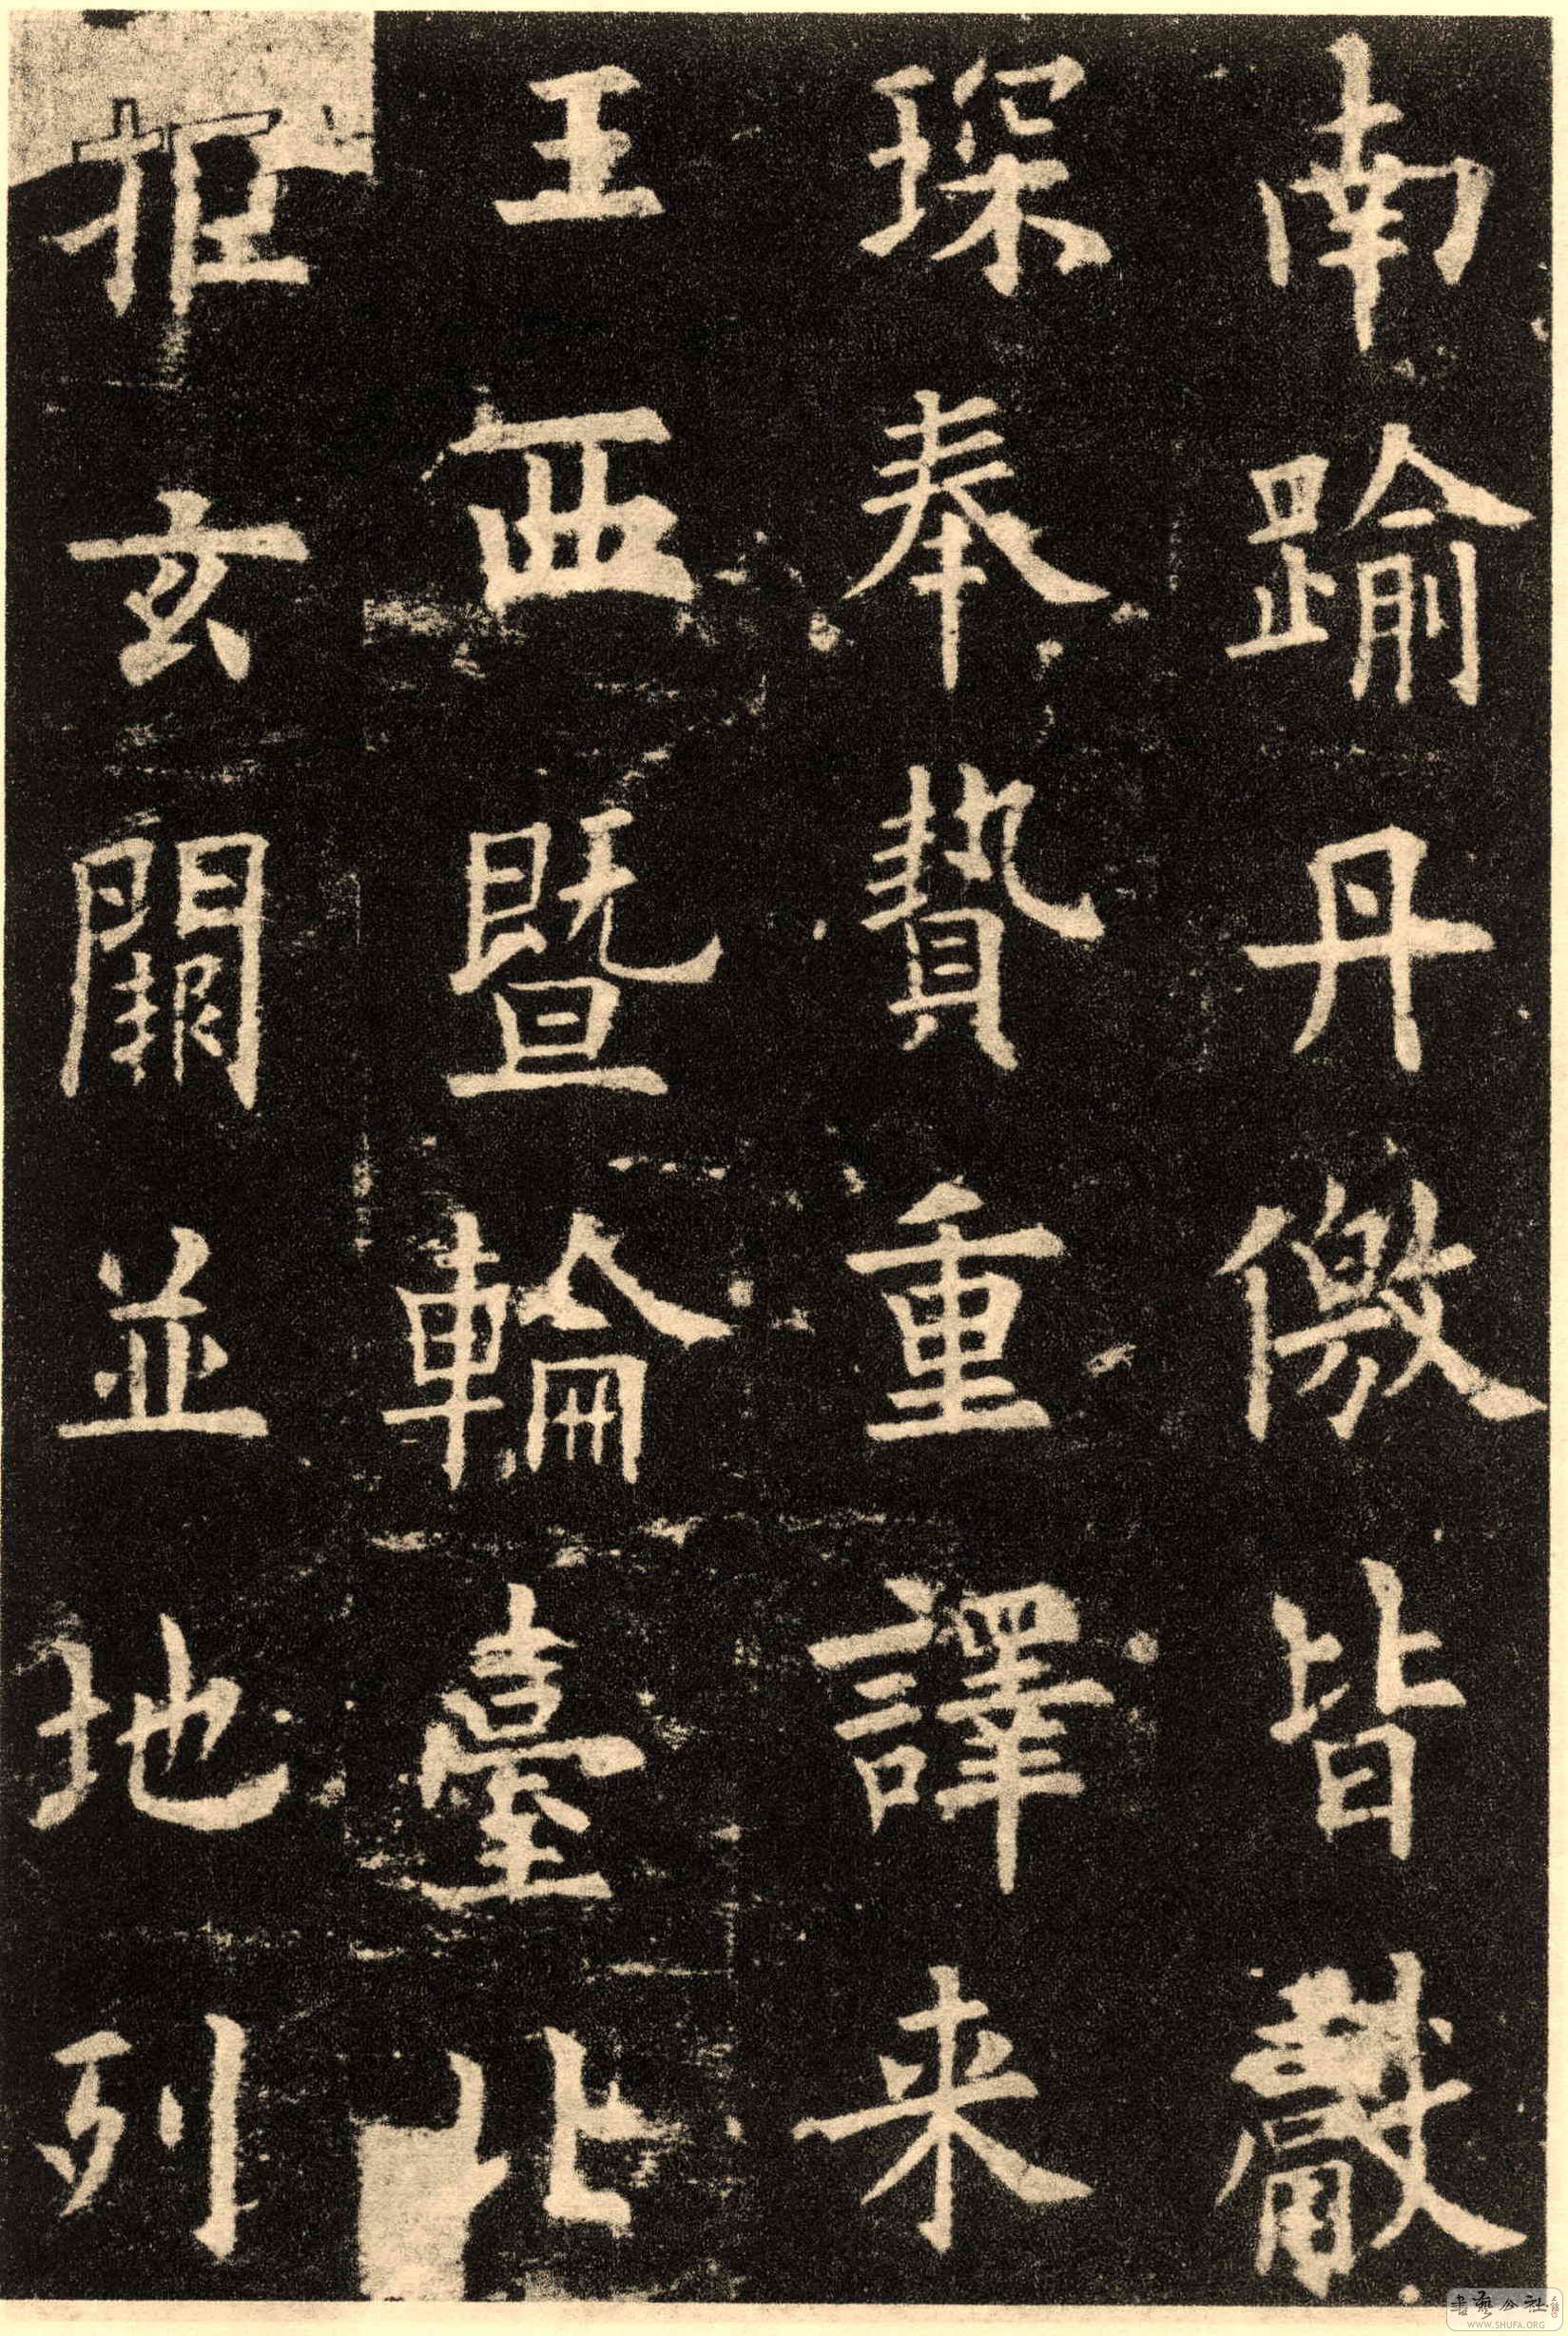 南踰丹儌皆獻
琛奉贄重譯来
王西暨輪臺北
拒玄闕並地列
書藝公社
WWW.SHUFA.ORG